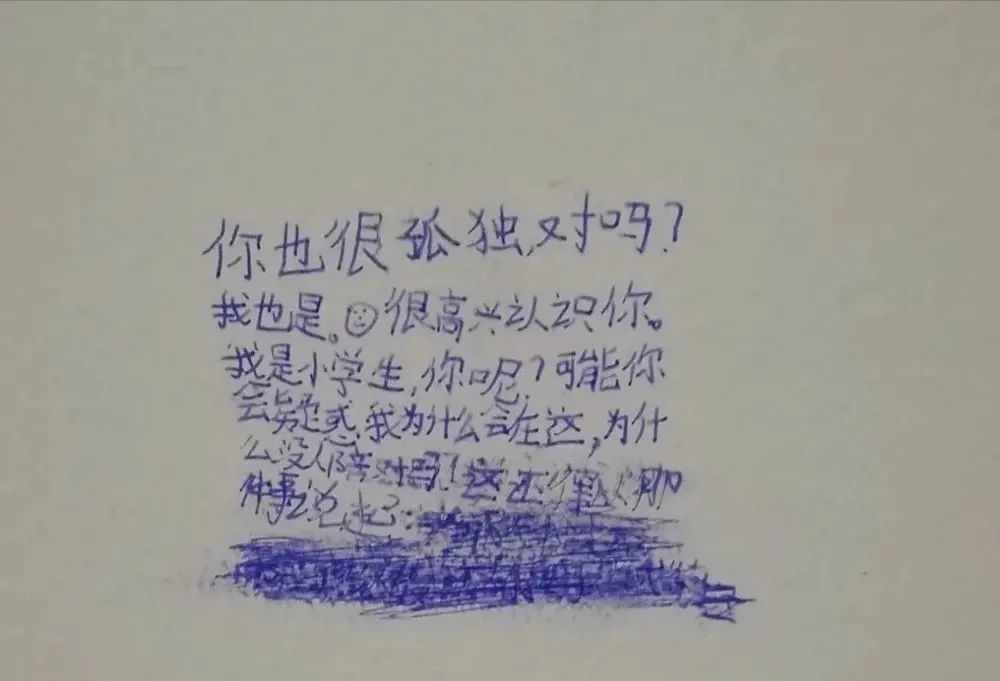 你也很孤独,对吗?
我也是。很高兴认识你。
我是小学生,你呢?可能你
会疑惑,我为什么会在这,为什
么没人陪对吗?这还得从那
件事说起了: